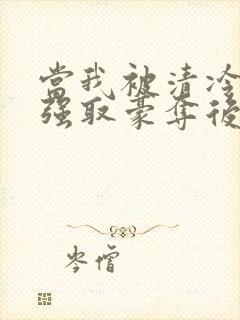 當我被清冷
強取豪奪後
岑僧